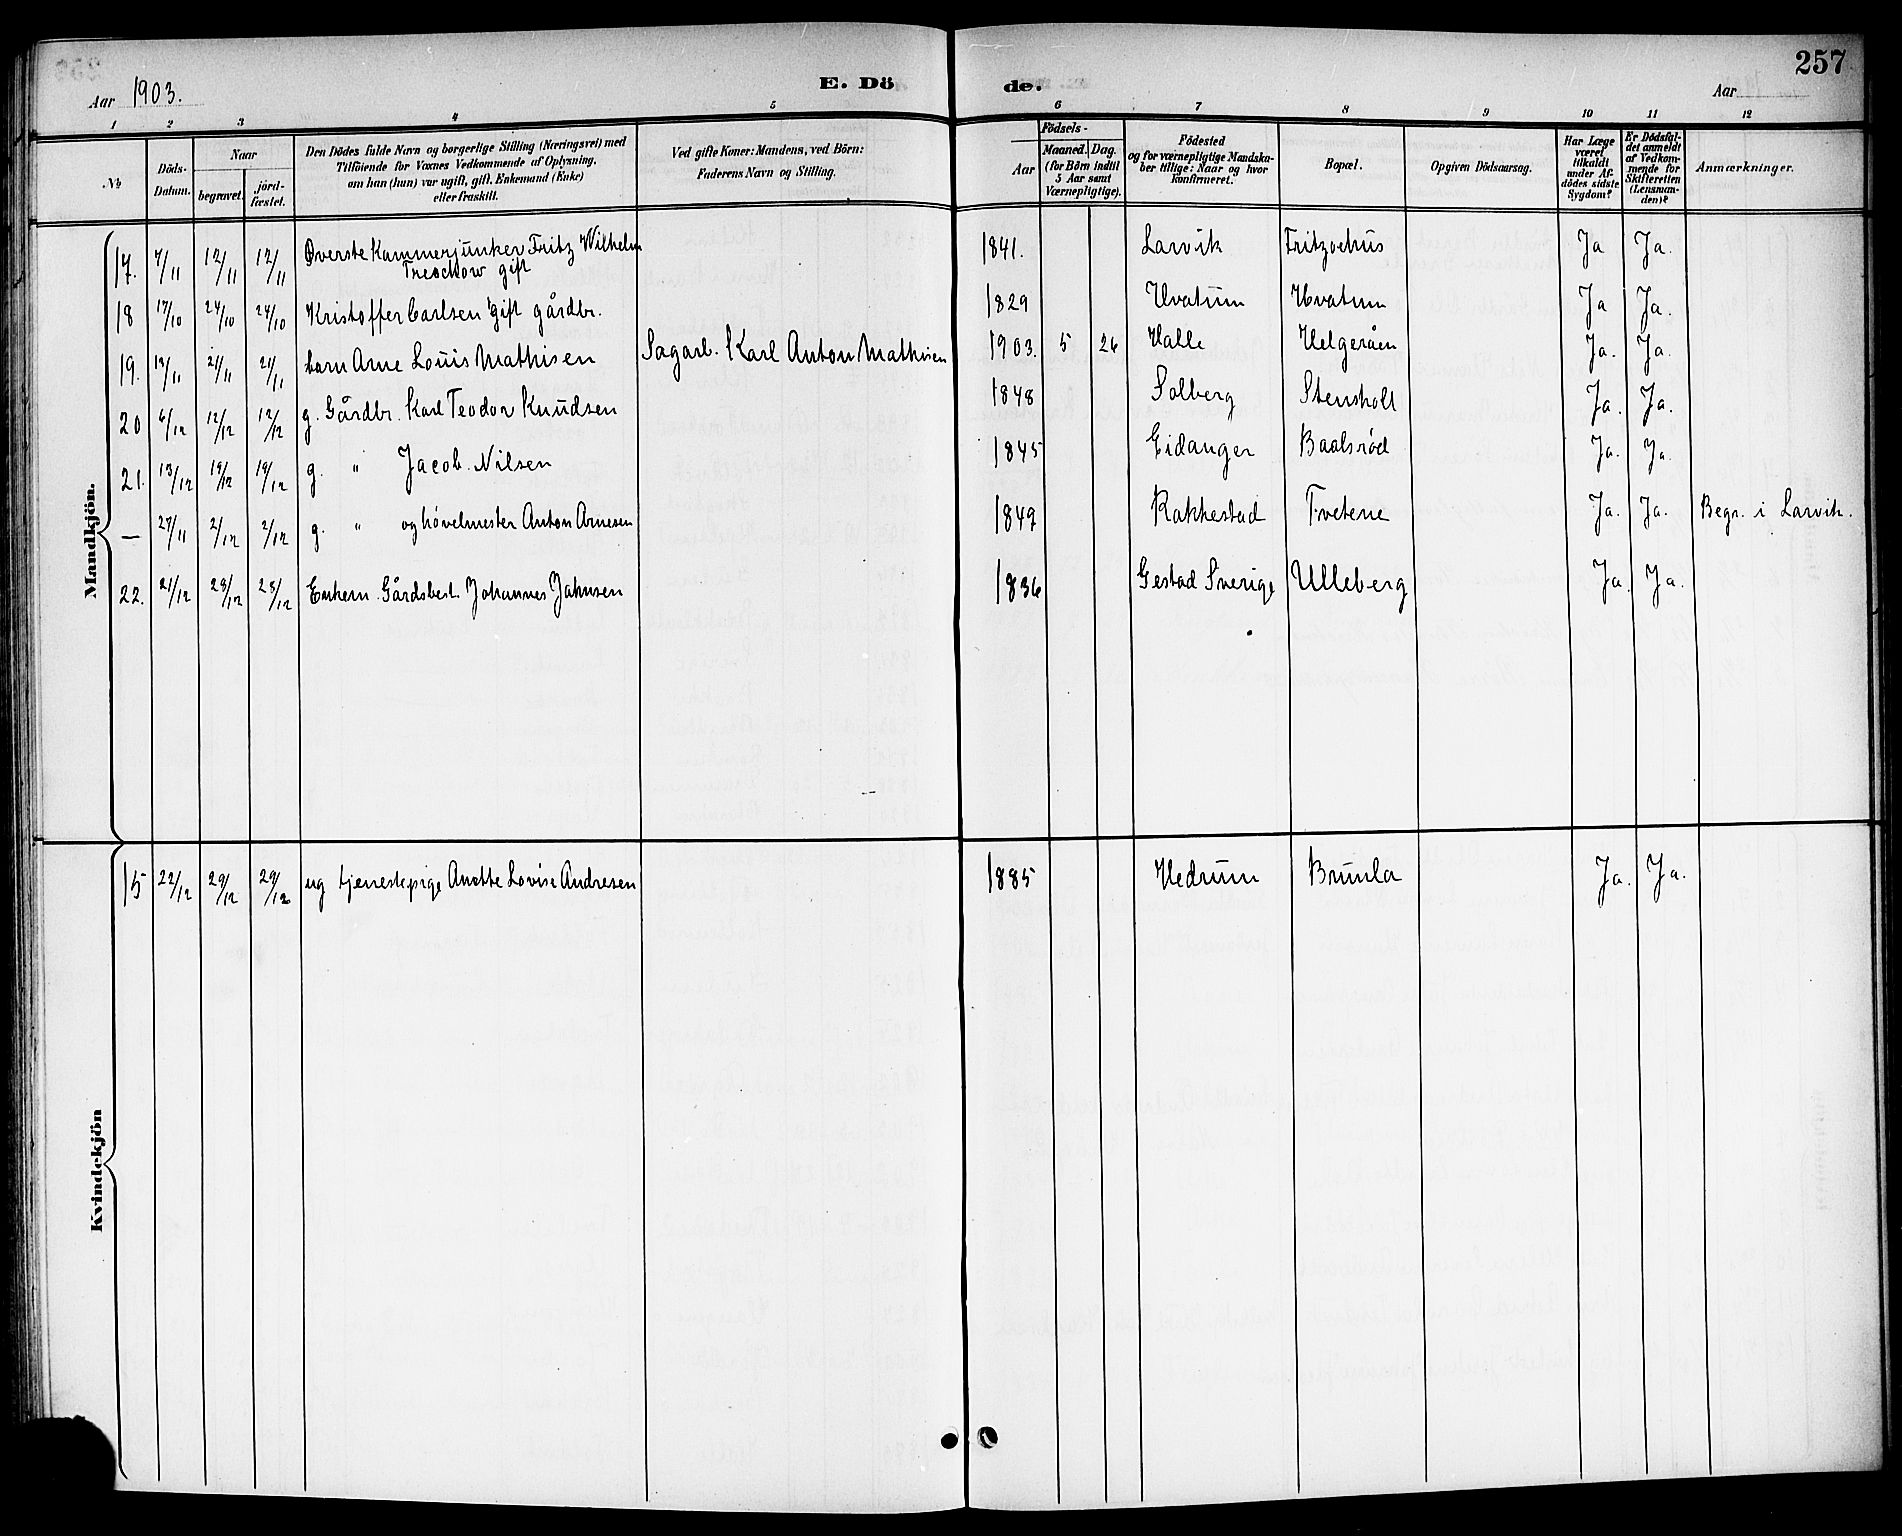 257
Aar 1903. E. Dö de. Aar
1 2 3 4 5 6 7 8 9 10 11 12
№ Döds-Datum. Naar begravet. jörd-fæstet. Den Dödes fulde Navn og borgerlige Stilling (Næringsvei) med Tilföiende for Voxnes Vedkommende af Oplysning, om han (hun) var ugift, gift, Enkemand (Enke) eller fraskilt. Ved gifte Koner: Mandens, ved Börn: Faderens Navn og Stilling. Födsels- Aar Maaned. Dag. (for Börn indtil 5 Aar samt Værnepligtige). Födested og for værnepligtige Mandskaber tillige: Naar og hvor konfirmeret. Bopæl. Opgiven Dödsaarsag. Har Læge været tilkaldt under Afdödes sidste Sygdom? Er Dödsfaldet anmeldt af Vedkommende for Skifteretten (Lensmanden)? Anmærkninger.
Mandkjön.
17. 7/11 12/11 12/11 Øverste Kammerjunker Fritz Wilhelm Treschow gift 1841. Larvik Fritzøehus Ja Ja.
18 17/10 24/10 24/10 Kristoffer Carlsen gift gårdbr. 1829 Hvatum Hvatum Ja Ja.
19. 13/11 21/11 21/11 barn Arne Louis Mathisen Sagarb. Karl Anton Mathisen 1903. 5 26 Halle Helgeråen Ja. Ja.
20 6/12 12/12 12/12 g. Gårdbr. Karl Teodor Knudsen 1848 Solberg Stensholt Ja. Ja.
21. 13/12 19/12 19/12 g. " Jacob Nilsen 1845 Eidanger Baalsrød Ja. Ja.
— 27/11 2/12 2/12 g. " og høvelmester Anton Arnesen 1849 Rakkestad Tvetene Ja. Ja. Begr. i Larvik.
22. 21/12 /12 /12 Enkem. Gårdsbest. Johannes Jahnsen 1836 Gestad Sverige Ulleberg Ja. Ja.
Kvindekjön
15 22/12 29/12 29/12 ug tjenestepige Anette Lovise Andresen 1885 Hedrum Brunla Ja. Ja.